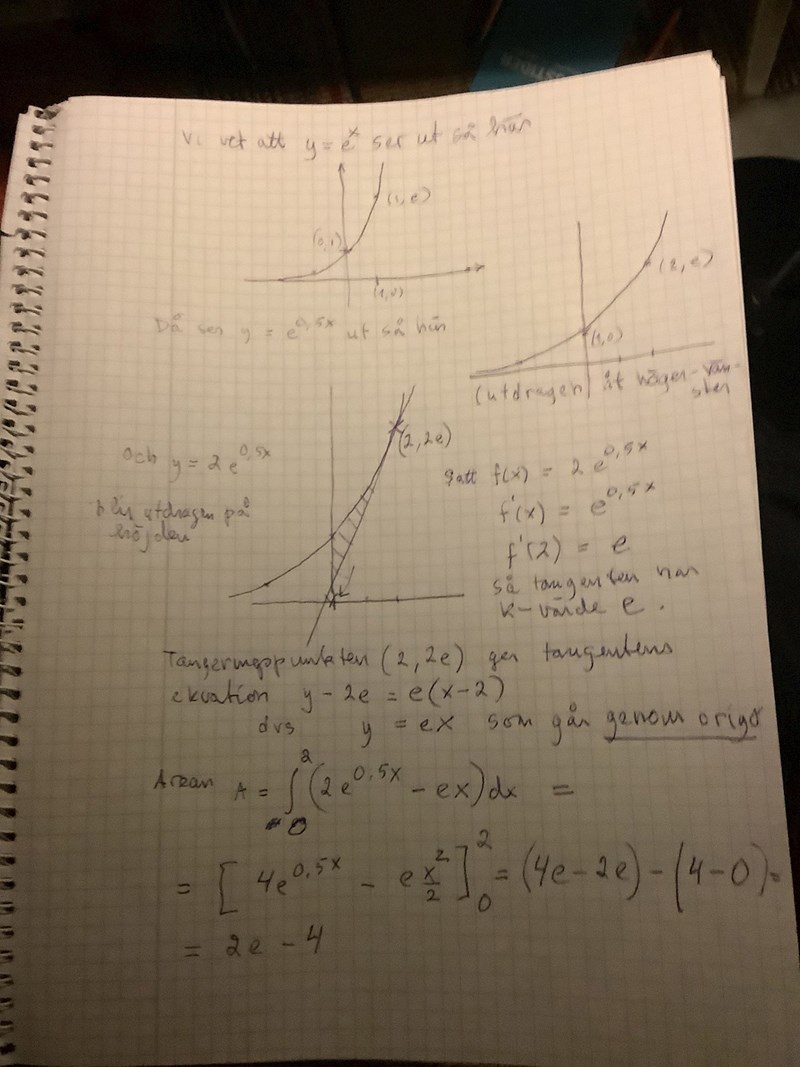 Vi vet att y = e^x ser ut så här
(1, e)
(0, 1)
(1, 0)
Då ser y = e^0,5x ut så här
(2, e)
(1, 0)
(utdragen åt höger-vän-
ster
Och y = 2 e^0,5x
blir utdragen på
höjden
(2, 2e)
Satt f(x) = 2 e^0,5x
f'(x) = e^0,5x
f'(2) = e
så tangenten har
k-värde e.
Tangeringspunkten (2, 2e) ger tangentens
ekvation y - 2e = e(x-2)
dvs y = ex som går genom origo
Arean A = ∫_0^2 (2e^0,5x - ex) dx =
= [4e^0,5x - e x^2/2]_0^2 = (4e - 2e) - (4 - 0) =
= 2e - 4